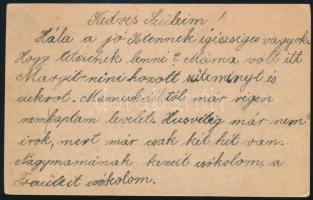 Kedves Szüleim!
Hála a jó Istennek egészséges vagyok.
Hogy tetszenek lenni? Máma volt itt
Margit néni hozott süteményt és
cukrot. Mámeukától már régen
nem kaptam levelet. Husvétig már nem
irok, mert már csak két hét van.
Nagymamának kezeit csókolom, a
Frauleit csókolom.